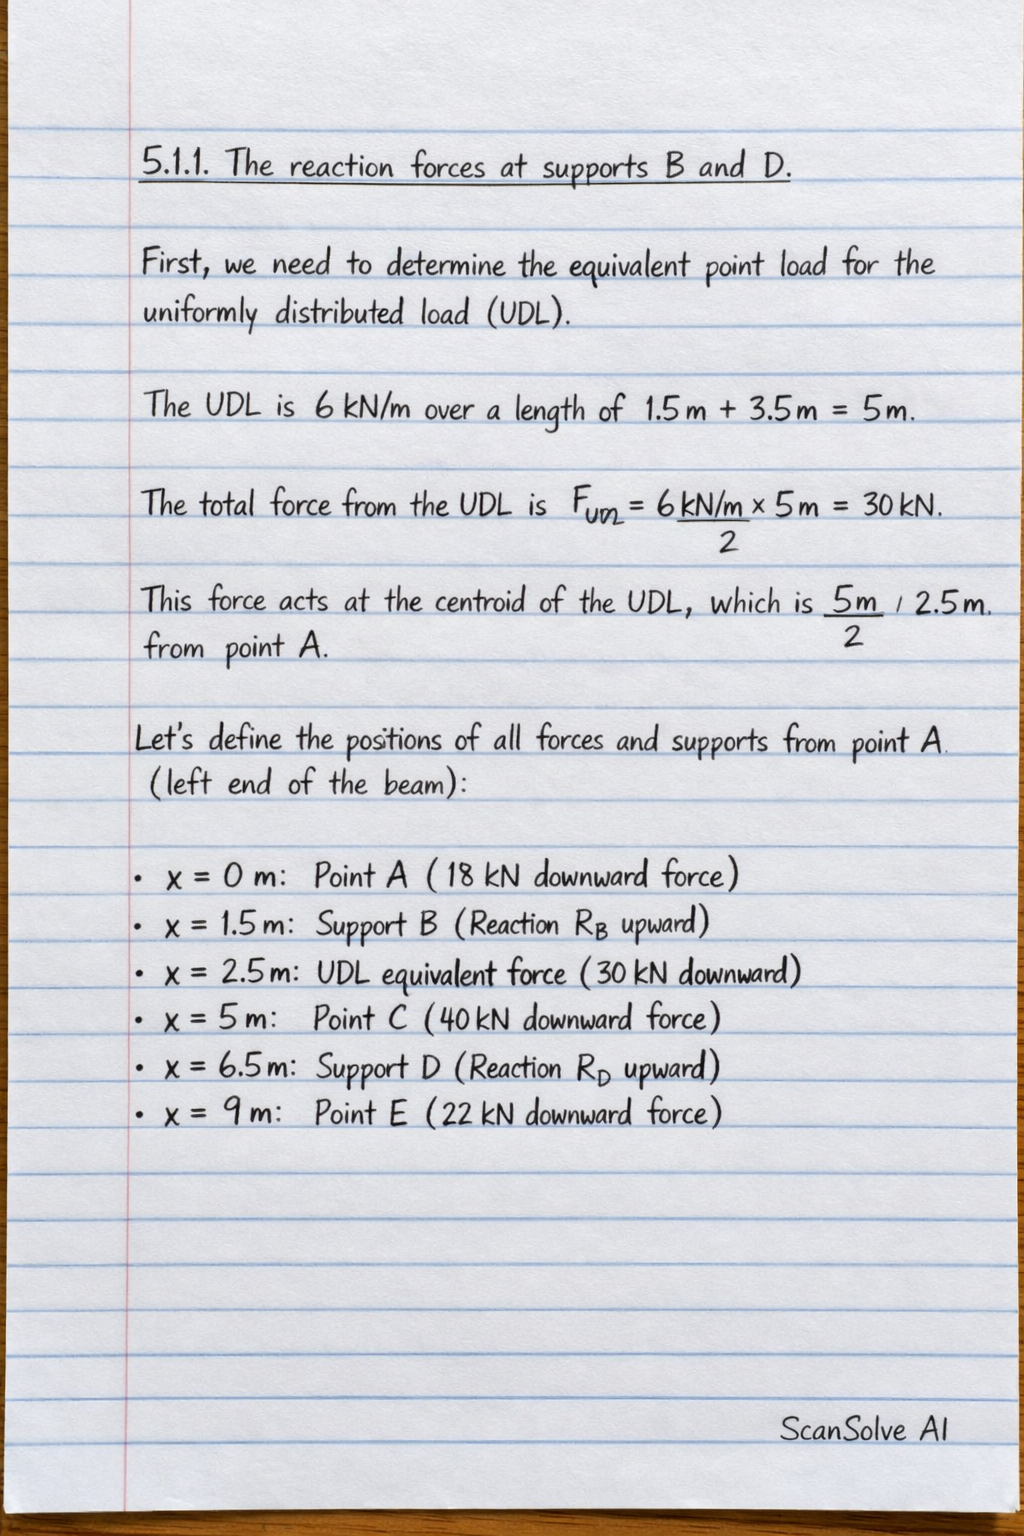 5.1.1. The reaction forces at supports B and D.
First, we need to determine the equivalent point load for the
uniformly distributed load (UDL).
The UDL is 6 kN/m over a length of 1.5 m + 3.5 m = 5 m.
The total force from the UDL is F = 6 kN/m × 5 m = 30 kN.
2
This force acts at the centroid of the UDL, which is 5m / 2.5 m.
2
from point A.
Let's define the positions of all forces and supports from point A.
(left end of the beam):
• x = 0 m: Point A (18 kN downward force)
• x = 1.5 m: Support B (Reaction R_B upward)
• x = 2.5 m: UDL equivalent force (30 kN downward)
• x = 5 m: Point C (40 kN downward force)
• x = 6.5 m: Support D (Reaction R_D upward)
• x = 9 m: Point E (22 kN downward force)
ScanSolve AI